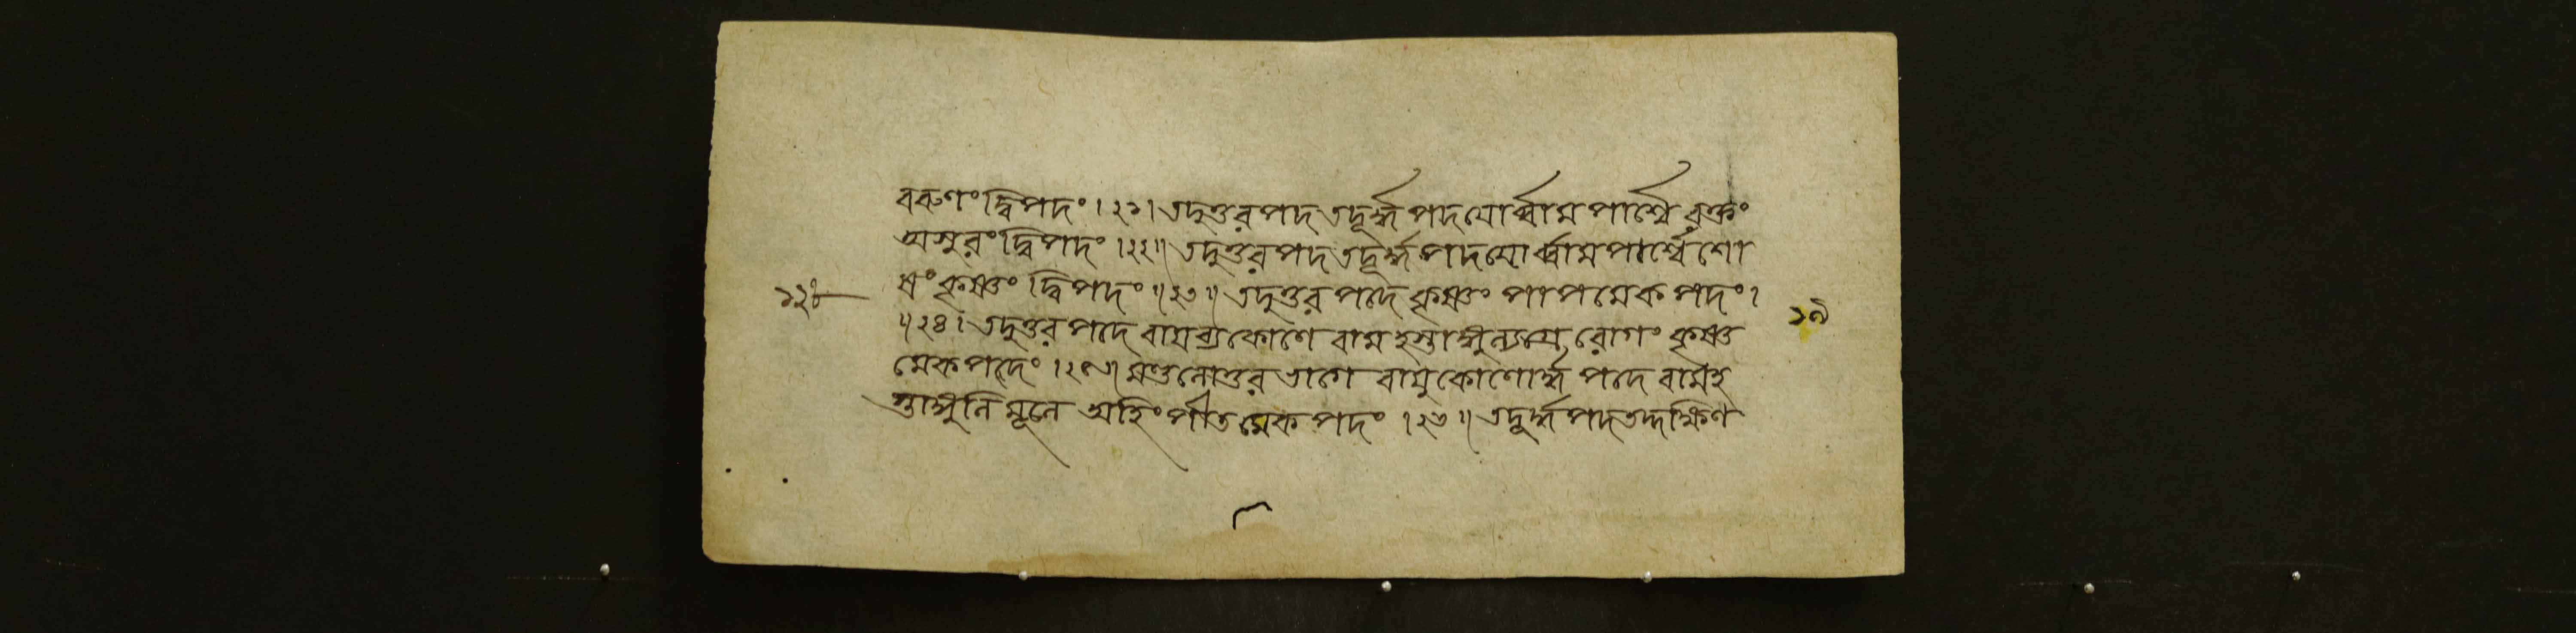 বরুণং দ্বিপদং ।২১। তদুত্তরপদতদূর্দ্ধপদয়োর্ব্বামপার্শ্বে রক্তং
অসুরং দ্বিপদং ।২২॥ তদুত্তরপদতদূর্দ্ধপদয়োর্ব্বামপার্শ্বে শো
ষং কৃষ্ণং দ্বিপদং ॥২৩॥ তদুত্তরপদে কৃষ্ণং পাপমেকপদং ।
॥২৪। তদুত্তরপদে বায়ব্যকোণে বামহস্তাঙ্গুল্যগ্রে রোগং কৃষ্ণ
মেকপদং ।২৫॥ মণ্ডলোত্তরভাগে বায়ুকোণোর্দ্ধপদে বামহ
স্তাঙ্গুলিমূলে অহিং পীতমেকপদং ।২৬॥ তদূর্দ্ধপদতদ্দক্ষিণ
১৯